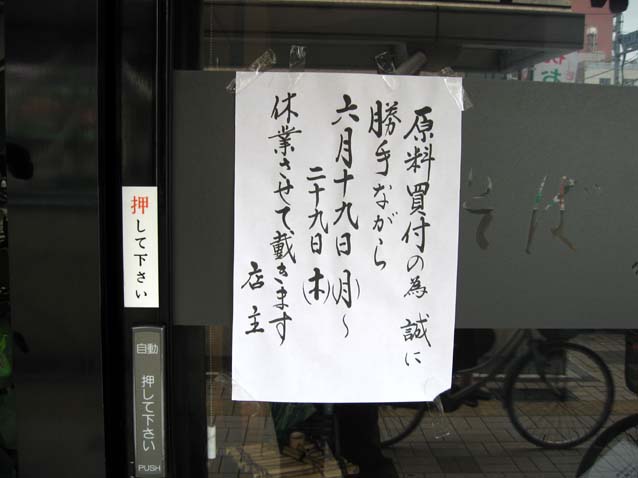 原料買付の為 誠に
勝手ながら
六月十九日(月)～
二十九日(木)
休業させて戴きます
店主
押して下さい
自動
押して下さい
PUSH